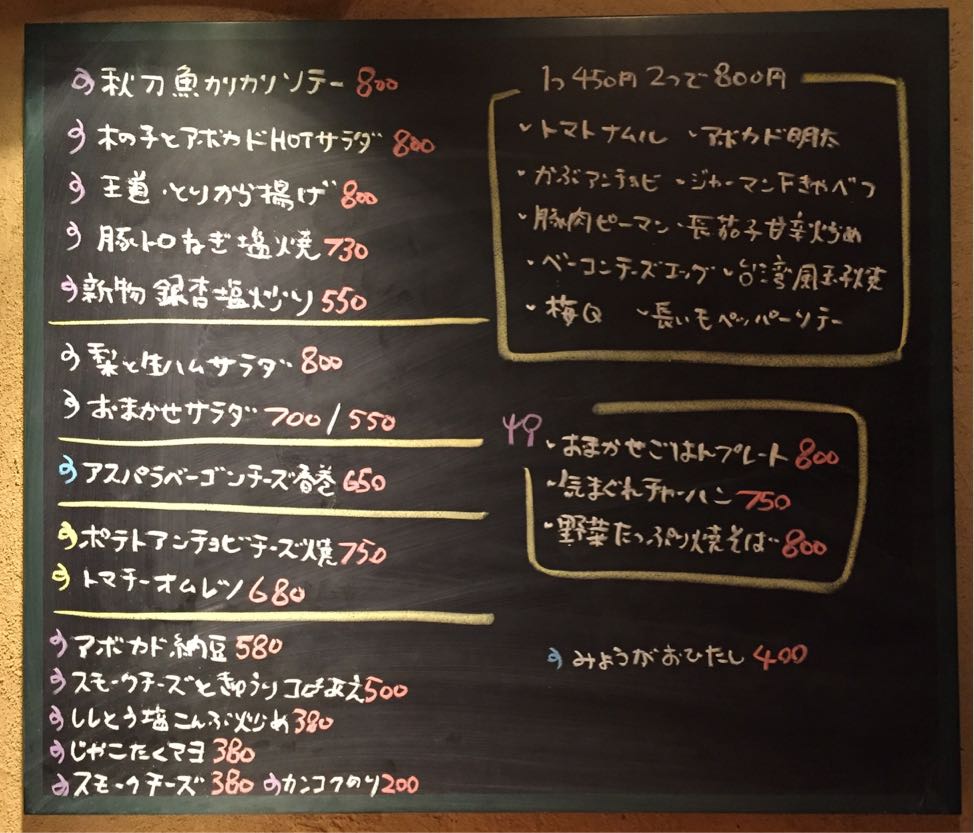 秋刀魚カリカリソテー 800
木の子とアボカドHOTサラダ 800
王道・とりから揚げ 800
豚トロねぎ塩焼 730
新物 銀杏塩炒り 550
梨と生ハムサラダ 800
おまかせサラダ 700/550
アスパラベーコンチーズ春巻 650
ポテトアンチョビチーズ焼 750
トマチーオムレツ 680
アボカド納豆 580
スモークチーズときゅうりコロばあえ 500
ししとう塩こんぶ炒め 380
じゃこたくマヨ 380
スモークチーズ 380 カンコクのり 200
1つ450円 2つで800円
・トマトナムル ・アボカド明太
・かぶアンチョビ ・ジャーマンFきゃべつ
・豚肉ピーマン ・長茄子甘辛炒め
・ベーコンチーズエッグ ・台湾風玉子焼
・梅Q ・長いもペッパーソテー
・おまかせごはんプレート 800
・気まぐれチャーハン 750
・野菜たっぷり焼そば 800
みょうがおひたし 400